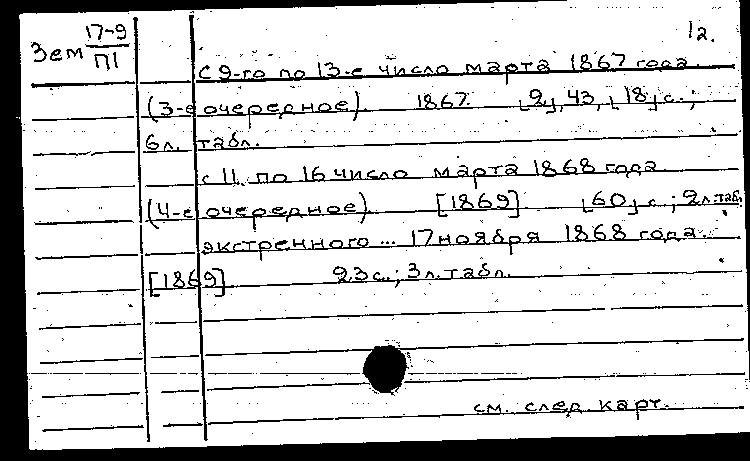 12.
Зем 17-9
П1
с 9-го по 13-е число марта 1867 года.
(3-е очередное). 1867. [2], 43, [18] с.;
6 л. табл.
с 11 по 16 число марта 1868 года
(4-е очередное). [1869] [60] с.; 2 л. таб.
экстренного ... 17 ноября 1868 года.
[1869] 23 с.; 3 л. табл.
см. след. карт.